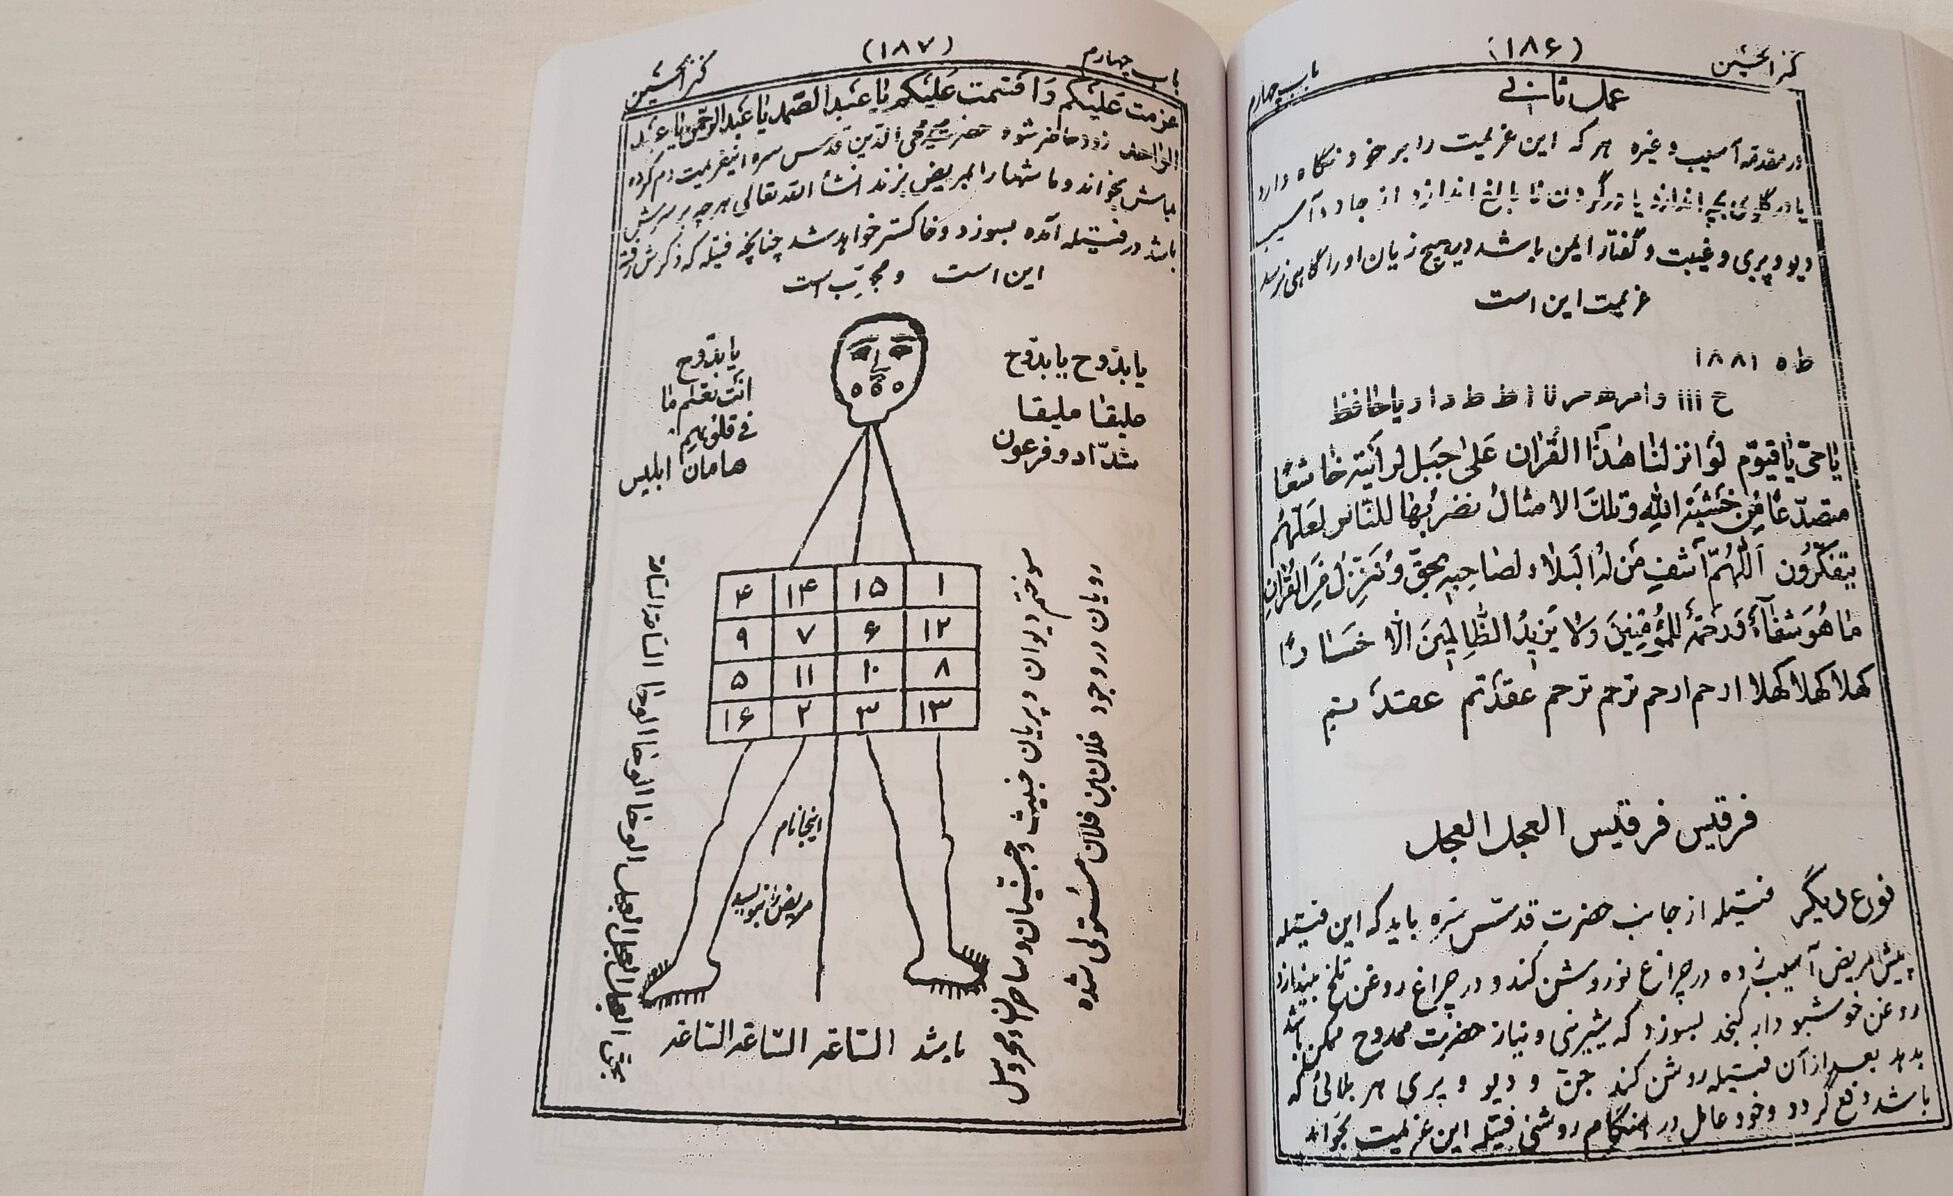 کنز الحسین (۱۸۶) باب چهارم
عمل ثانی
در مقدمه آسیب و غیره هر که این عزیمت را بر خود نگاه دارد
یا در گلوی بچه اندازد یا در گردن نابالغ اندازد از جادو آسیب
دیو و پری و غیبت و گفتار ایمن باشد و هیچ زیان او را گاهی نرسد
عزیمت این است
ط ه ۱۸۸۱
یا حافظ
یا حی یا قیوم لو انزلنا هذا القران علی جبل لرایته خاشعا
متصدعا من خشیة الله وتلك الامثال نضربها للناس لعلهم
یتفکرون اللهم اشف من له البلاء لصاحبه بحق وننزل من القران
ما هو شفاء ورحمة للمؤمنین ولا یزید الظالمین الا خسارا
کهلا کهلا کهلا ارحم ارحم ترحم ترحم عقدتم عقد
فرقلیس فرقلیس العجل العجل
نوع دیگر فتیله از جانب حضرت قدس سره باید که این فتیله
پیش مریض آسیب زده در چراغ نو روشن کند و در چراغ روغن تلخ بیندازد
روغن خوشبودار کنجد بسوزد که شیرینی و نیاز حضرت ممدوح ممکن باشد
بدهد بعد از آن فتیله روشن کند جن و دیو و پری هر بلائی که
باشد دفع گردد و خود عامل در هنگام روشنی فتیله این عزیمت بخواند
باب چهارم (۱۸۷) کنز الحسین
عزمت علیکم واقسمت علیکم یا عبد الصمد یا عبد الرحمن یا عبد
الواحد زود حاضر شود حضرت محی الدین قدس سره این عزیمت دم کرده
بخواند و ماشها را بمریض بزند انشاء الله تعالی هرچه بر سرش
باشد در فتیله آمده بسوزد و خاکستر خواهد شد چنانچه فتیله که ذکرش رفته
این است و مجرب است
یا بدوح یا بدوح
علیقا ملیقا
شداد و فرعون
یا بدوح
انت تعلم ما
فی قلوبهم
هامان ابلیس
۱ ۱۵ ۱۴ ۴
۱۲ ۶ ۷ ۹
۸ ۱۰ ۱۱ ۵
۱۳ ۳ ۲ ۱۶
اینجا نام
مریض را نویسد
سوختم دیوان و پریان خبیث و جنیان و ساحران و
رویان در وجود فلان بن فلان مستولی شده
باشد الساعة الساعة الساعة
بحق العجل العجل العجل الوحا الوحا الوحا الساعة الساعة